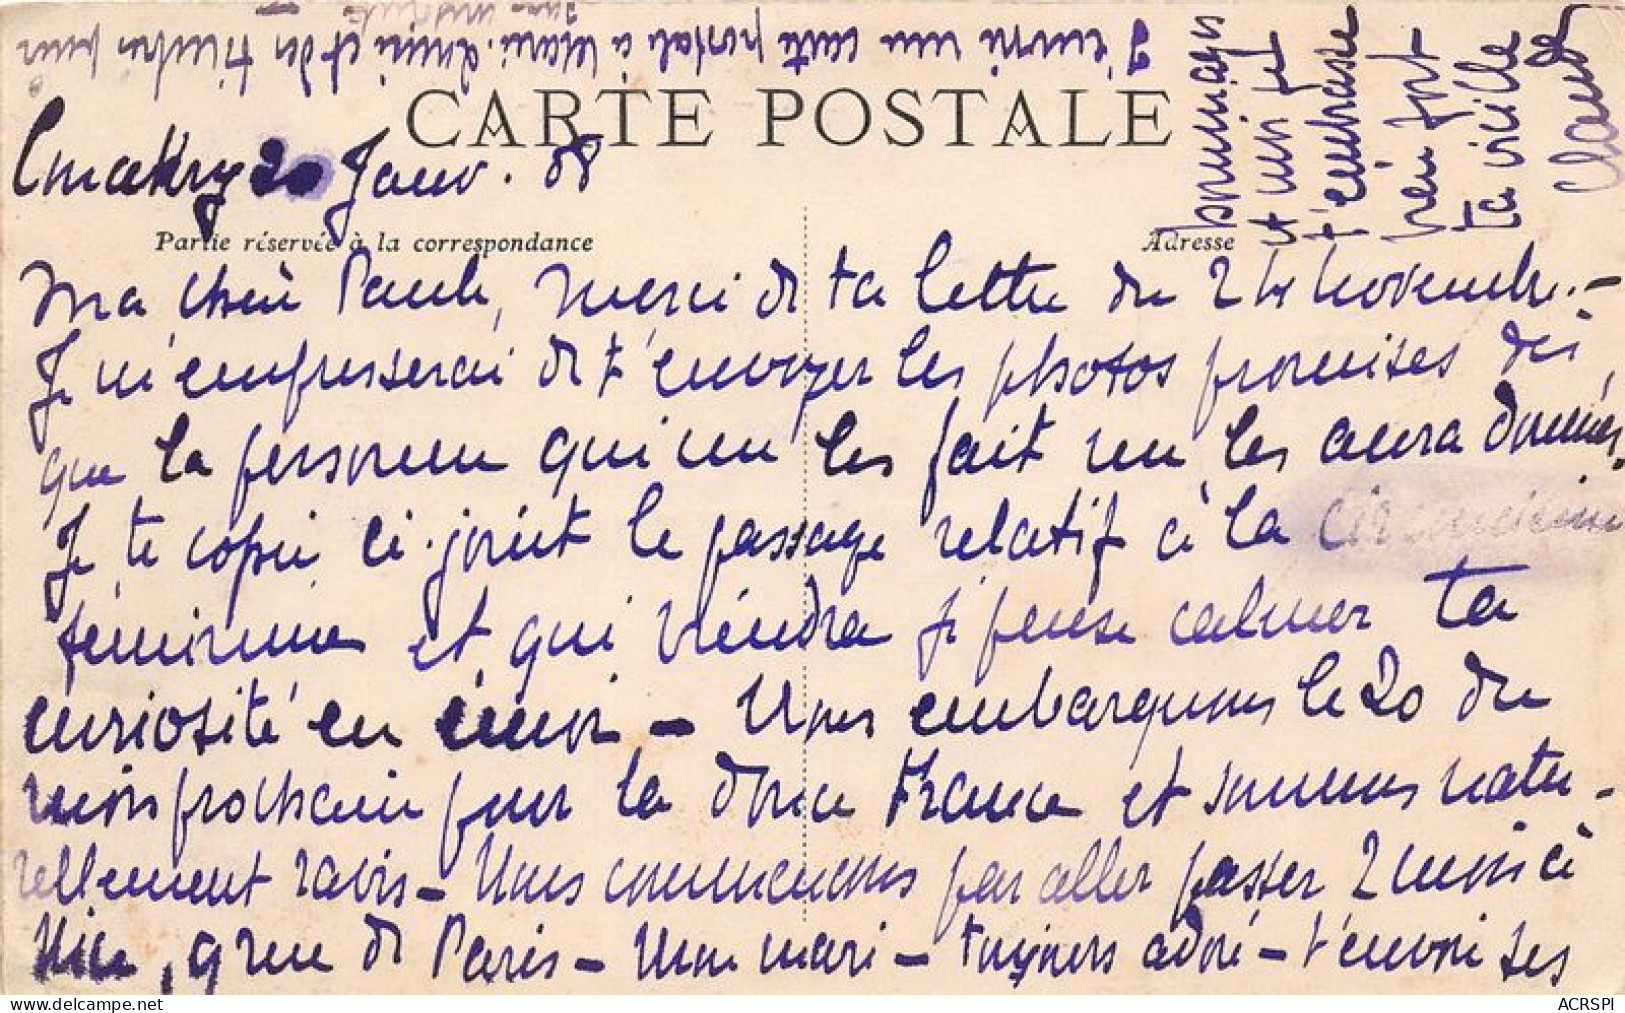 J'envoie une carte postale à et des timbres pour
CARTE POSTALE
Conakry 20 Janv. 08
Partie réservée à la correspondance
Adresse
Ma chère Paule, merci de ta lettre du 24 novembre. -
Je m'empresserai de t'envoyer les photos promises dès
que la personne qui me les fait me les aura données.
Je te copie ci-joint le passage relatif à la circoncision
féminine et qui viendra je pense calmer ta
curiosité en émoi - Nous embarquons le 20 du
mois prochain pour la douce France et sommes natu-
rellement ravis - Nous commencerons par aller passer 2 mois à
Nice, 9 rue de Paris - Mon mari - toujours adoré - t'envoie ses
hommages
et moi je
t'embrasse
bien fort
ta vieille
Claude
ACRSPI